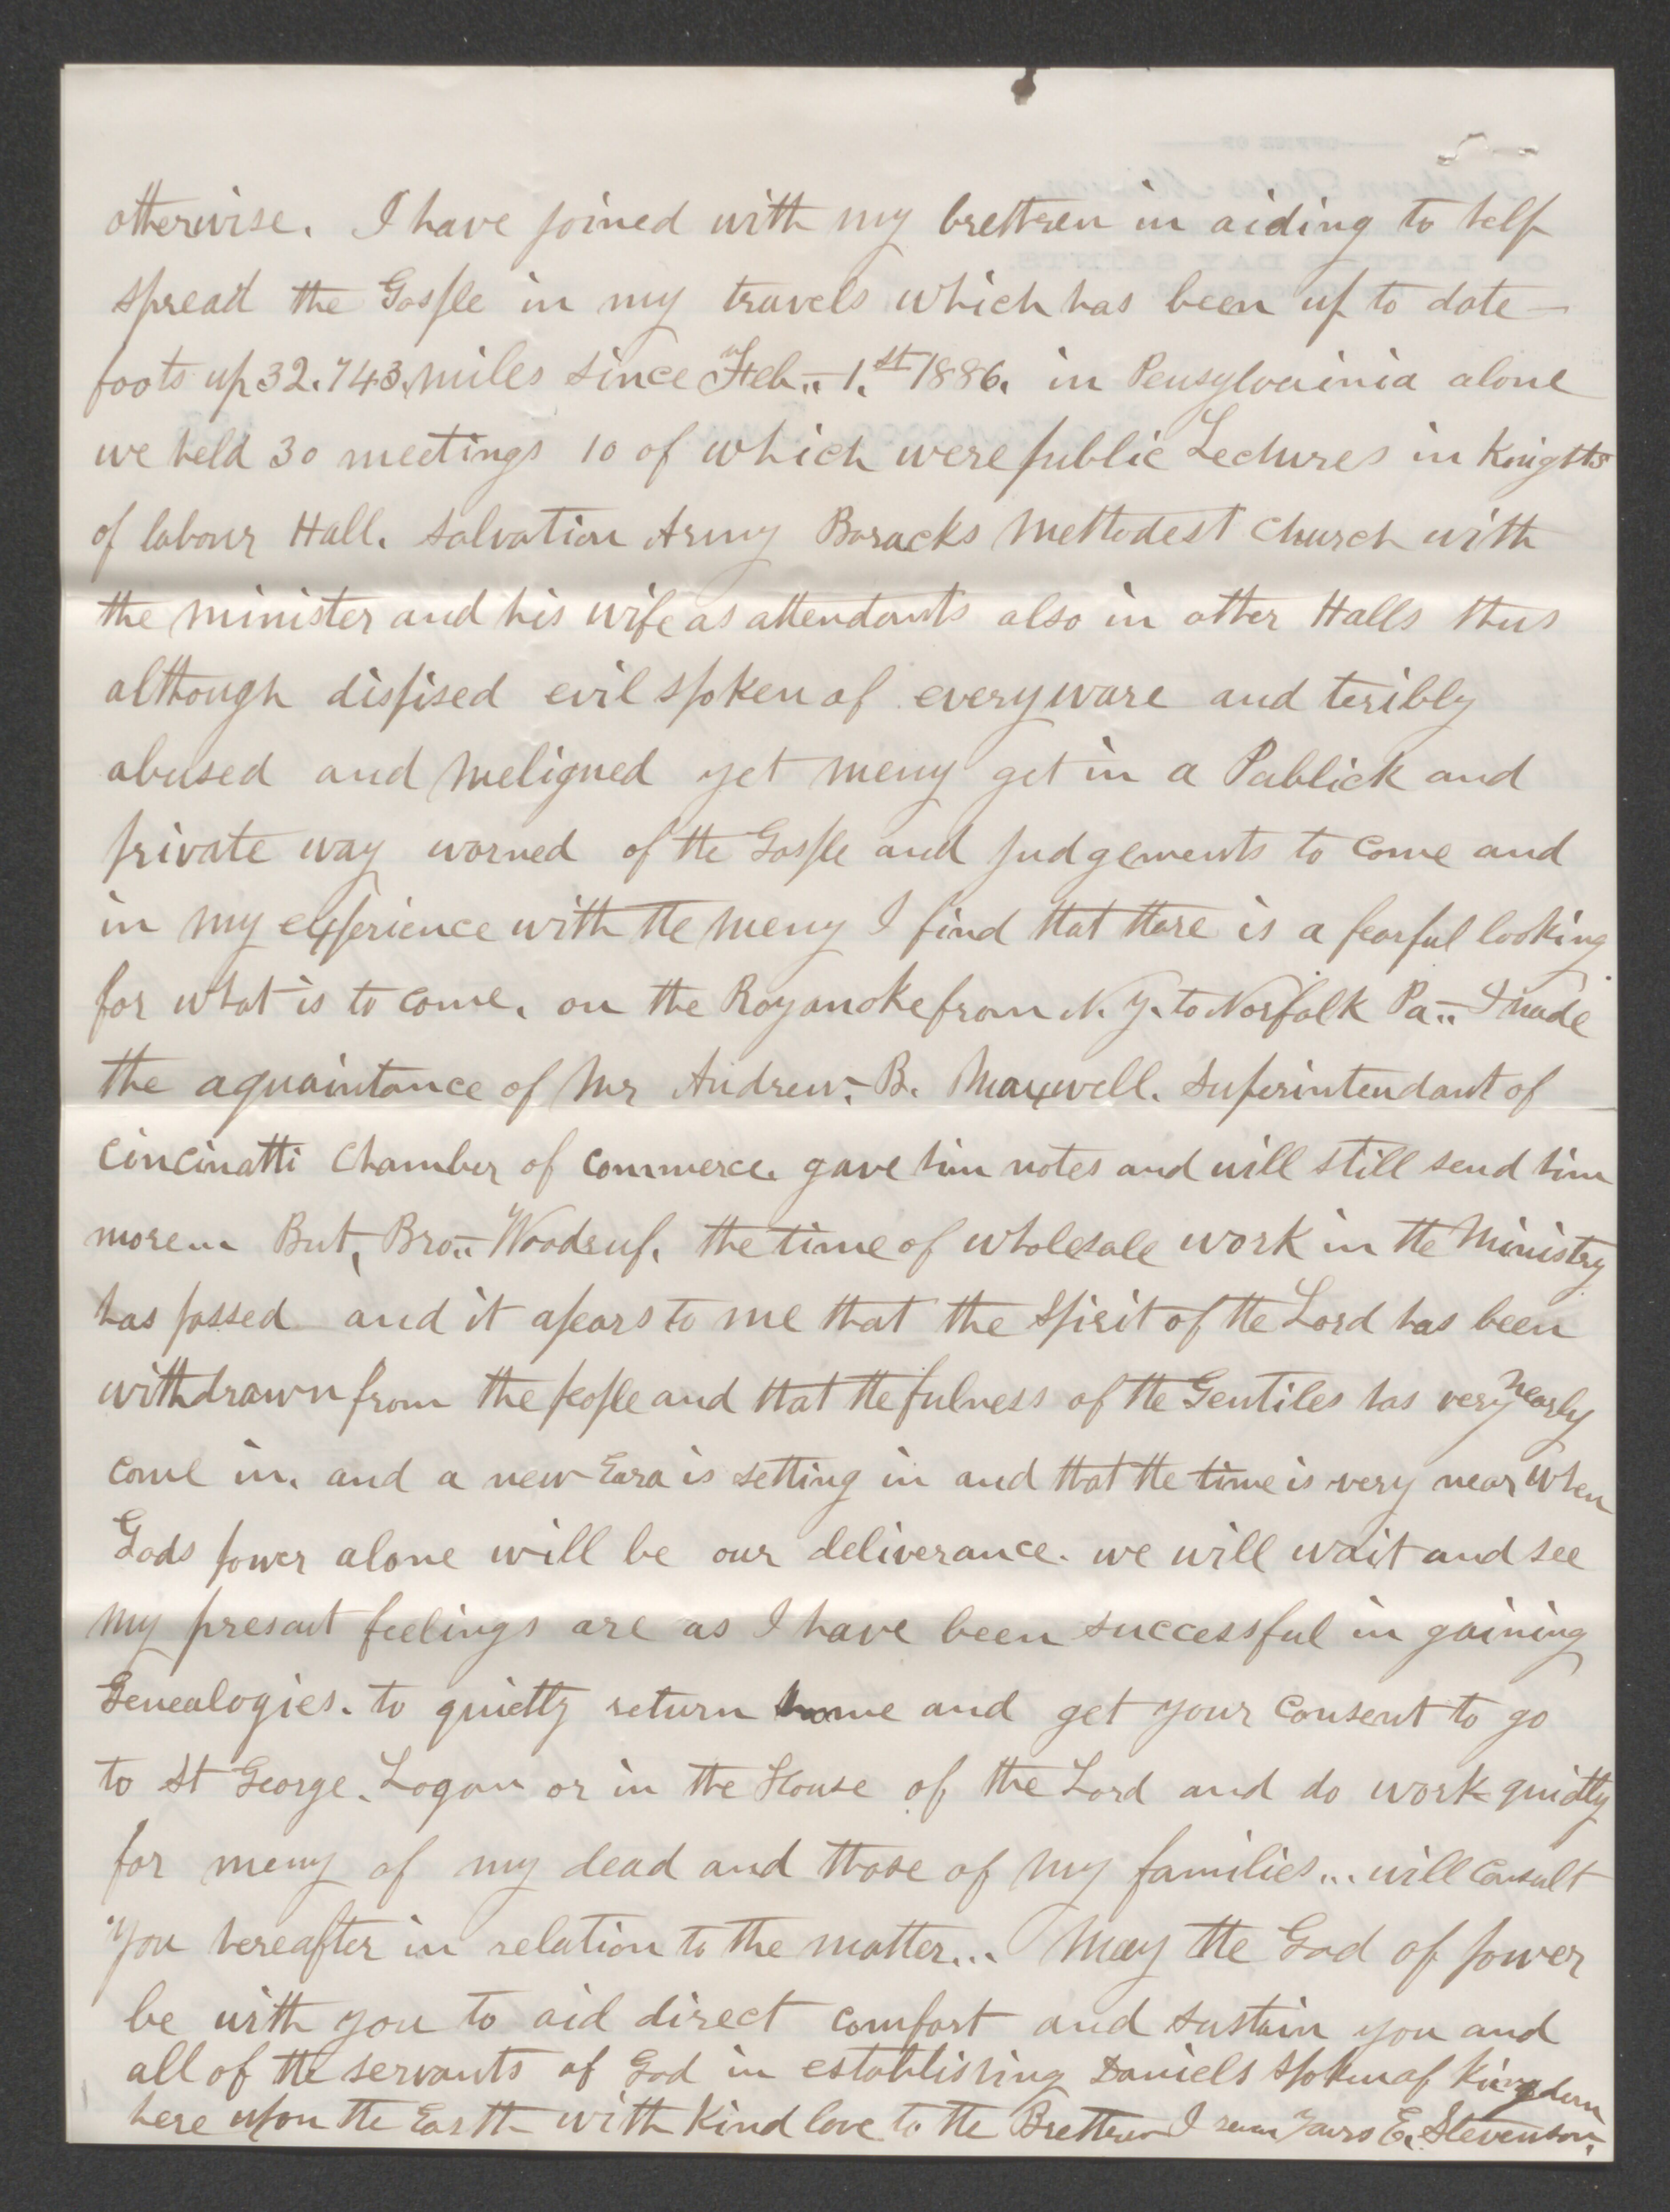 otherwise. I have joined with my brethren in aiding to help
spread the Gosple in my travels which has been up to date —
foots up 32.743. miles since Feb.. 1.st 1886. in Pensylvainia alone
we held 30 meetings 10 of which were public Lectures in Knights
of labour Hall. Salvation Army Baracks Methodest Church with
the minister and his wife as attendants also in other Halls thus
although dispised evil spoken of everyware and teribly
abused and meligned yet meny get in a Publick and
private way warned of the Gosple and judgements to come and
in my experience with the meny I find that thare is a fearful looking
for what is to come. on the Royanoke from N. Y. to Norfolk Pa.. I made
the aquaintance of Mr Andrew. B. Maxwell. Superintendant of
Cincinatti Chamber of Commerce. gave him notes and will still send him
more... But, Bro.. Woodruf. the time of wholesale work in the Ministry
has passed and it apears to me that the Spirit of the Lord has been
withdrawn from the people and that the fulness of the Gentiles has very nearly
come in. and a new Eara is setting in and that the time is very near when
Gods power alone will be our deliverance. we will wait and see
my presant feelings are as I have been successful in gaining
Genealogies. to quietly return home and get your consent to go
to St George. Logan or in the House of the Lord and do work quietly
for meny of my dead and those of my families... will consult
you hereafter in relation to the matter... May the God of power
be with you to aid direct comfort and sustain you and
all of the servants of God in establishing Daniels spoken of Kingdom
here upon the Earth with Kind love to the Brethren I Yours E. Stevenson.